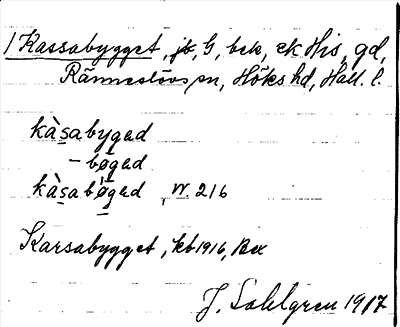 1 Kassabygget, jb, G, bek, ek His, gd,
Ränneslövs sn, Höks hd, Hall. l.
kàsabyged
- bøged
kàsabøged, W. 216
Karsabygget, kb 1916, Bex
J. Sahlgren 1917